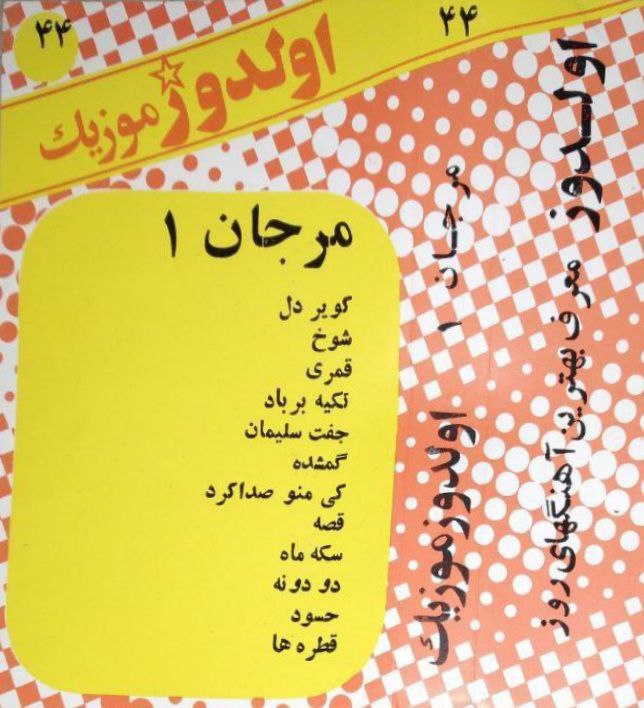 ۴۴
اولدوز موزیک
مرجان ۱
کویر دل
شوخ
قمری
تکیه بر باد
جفت سلیمان
گمشده
کی منو صدا کرد
قصه
سکه ماه
دو دونه
حسود
قطره ها
۴۴
مرجان ۱
اولدوز موزیک
اولدوز معرف بهترین آهنگهای روز